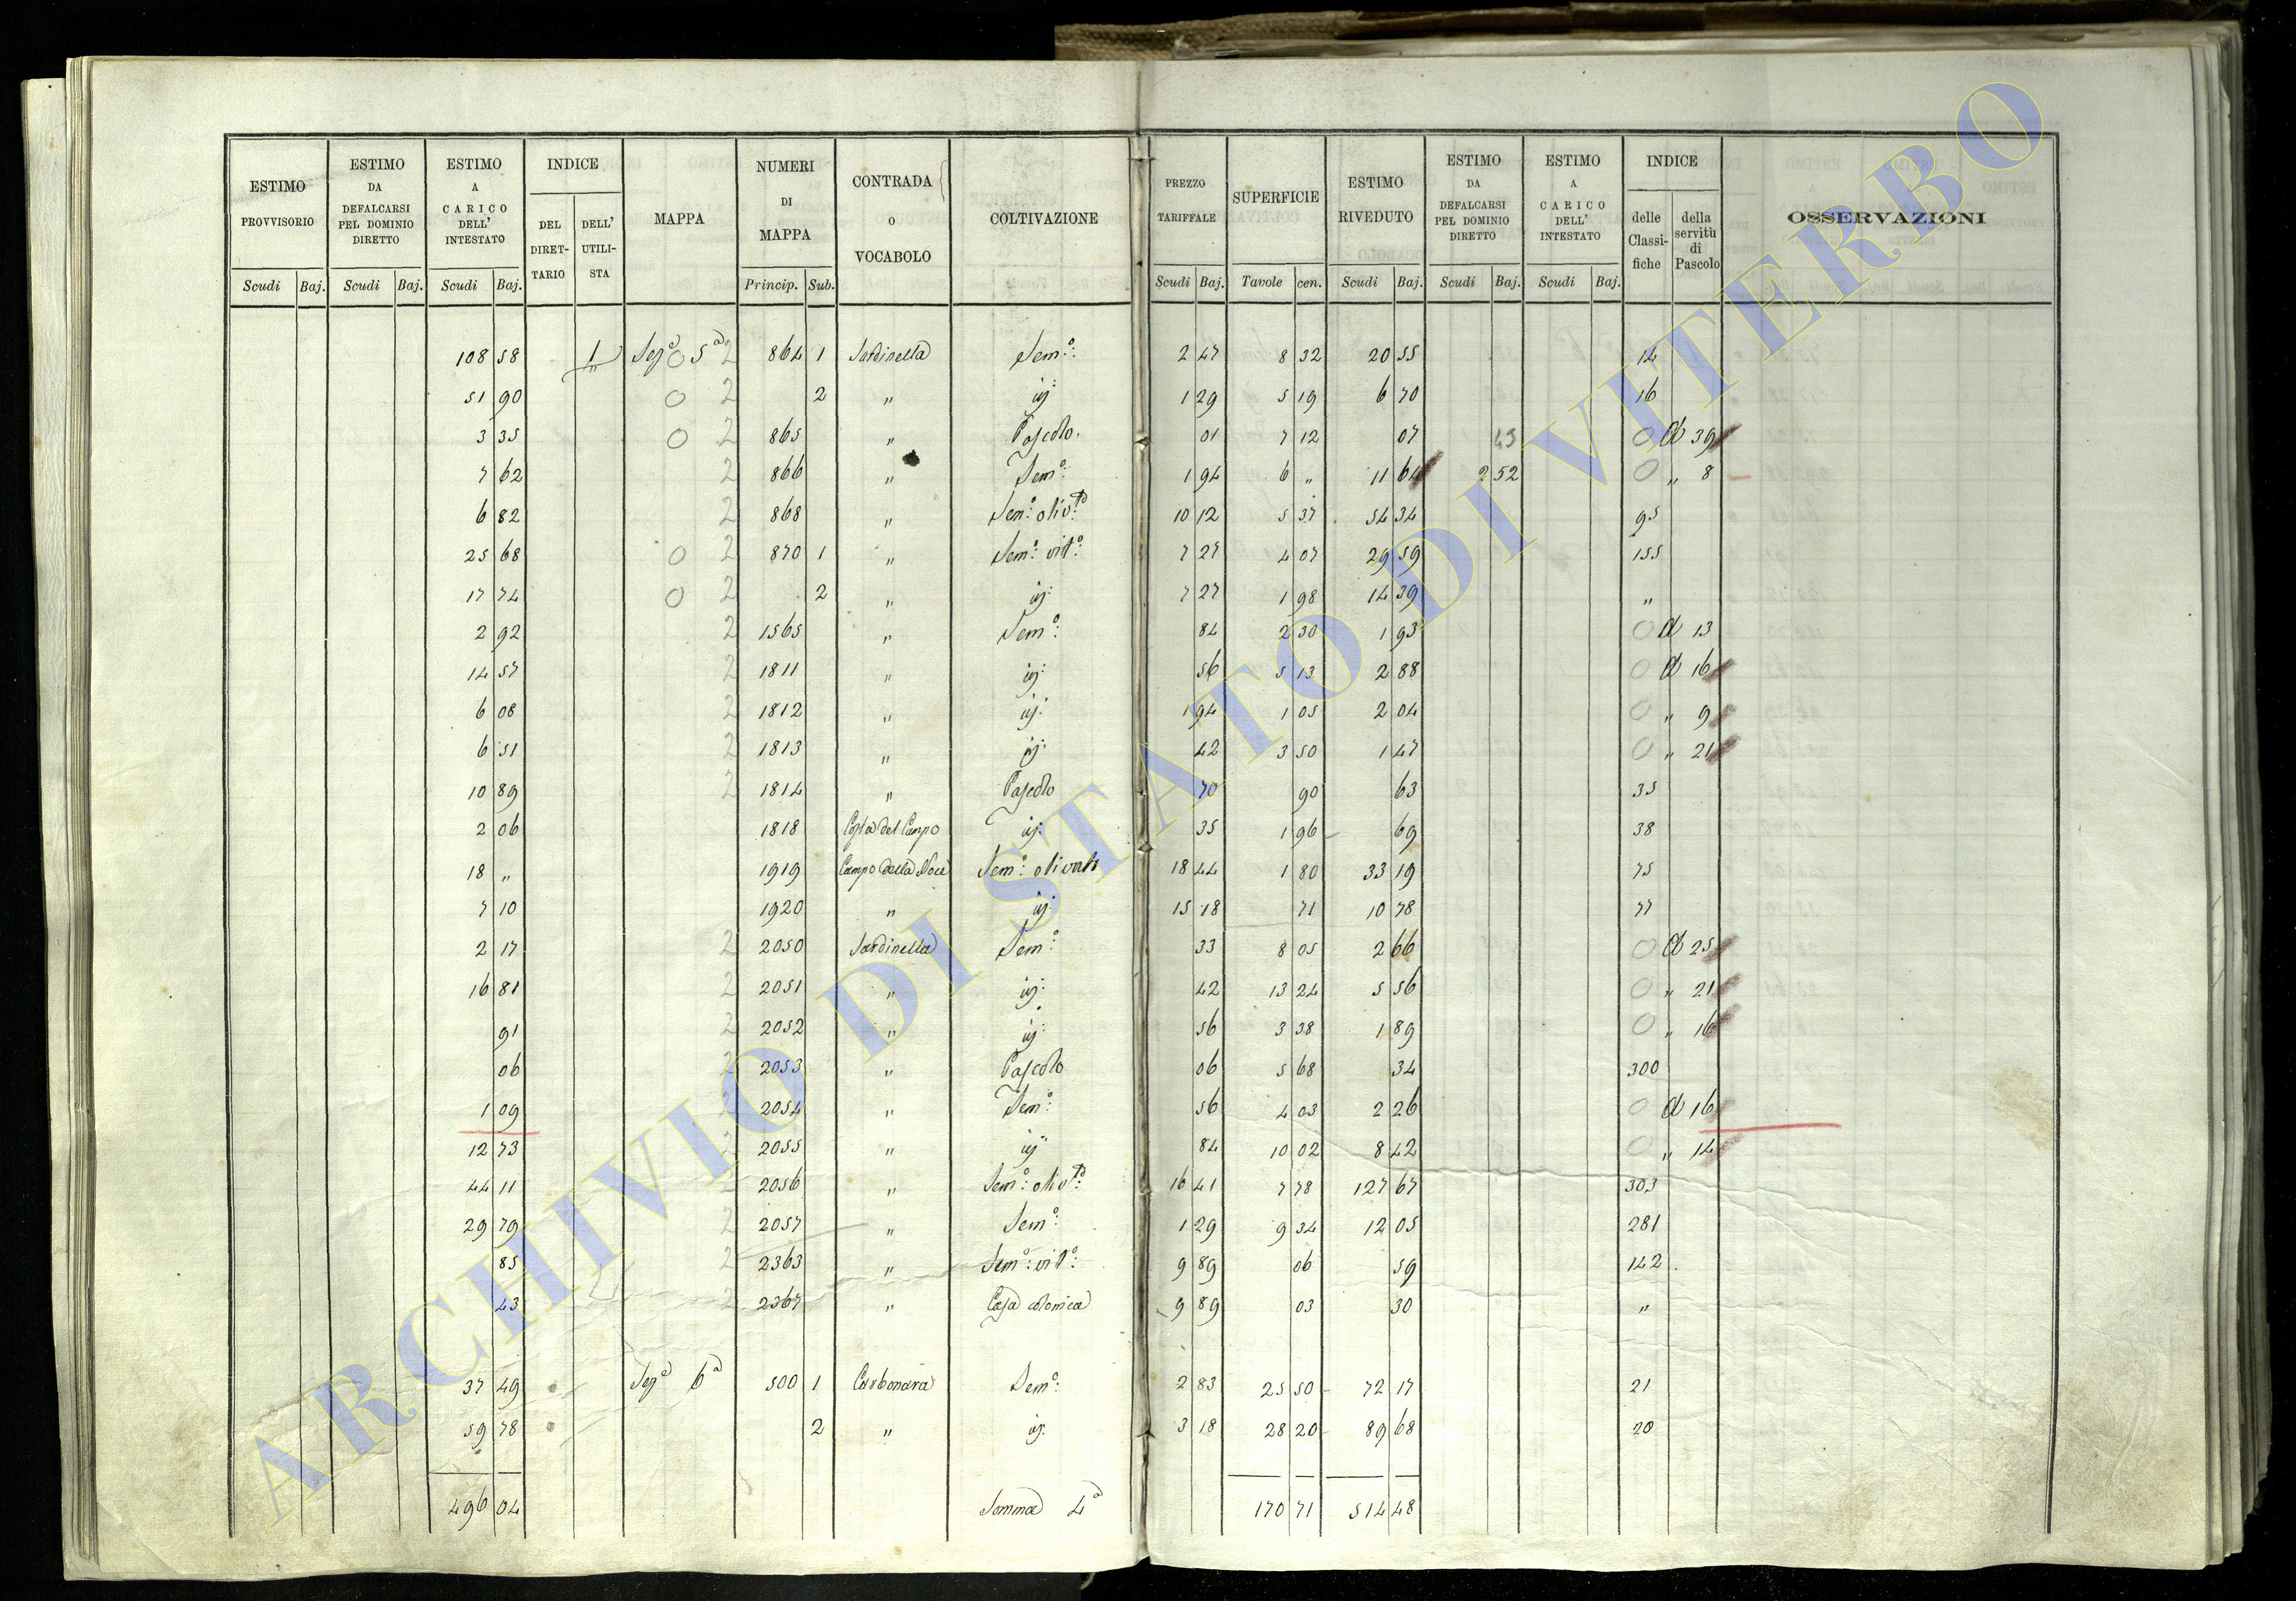 ESTIMO PROVVISORIO | ESTIMO DA DEFALCARSI PEL DOMINIO DIRETTO | ESTIMO A CARICO DELL' INTESTATO | INDICE | MAPPA | NUMERI DI MAPPA | CONTRADA o VOCABOLO | COLTIVAZIONE | PREZZO TARIFFALE | SUPERFICIE | ESTIMO RIVEDUTO | ESTIMO DA DEFALCARSI PEL DOMINIO DIRETTO | ESTIMO A CARICO DELL' INTESTATO | INDICE | OSSERVAZIONI
DEL DIRET-TARIO | DELL' UTILI-STA | delle Classi-fiche | della servitù di Pascolo
Scudi Baj. | Scudi Baj. | Scudi Baj. | Princip. Sub. | Scudi Baj. | Tavole cen. | Scudi Baj. | Scudi Baj. | Scudi Baj.
108 58 | 1 | Segª 5ª 2 | 864 1 | Sardinella | Semº: | 2 47 | 8 32 | 20 55 | 14
51 90 | 2 | 2 | " | id: | 1 29 | 5 19 | 6 70 | 16
3 35 | 2 | 865 | " | Pascolo. | 01 | 7 12 | 07 | 45 | 39
7 62 | 2 | 866 | " | Semº: | 1 94 | 6 " | 11 64 | 2 52 | " 8
6 82 | 2 | 868 | " | Semº: olivtº | 10 12 | 5 37 | 54 34 | 95
25 68 | 2 | 870 1 | " | Semº: vitº: | 7 27 | 4 07 | 29 59 | 155
17 74 | 2 | 2 | " | id: | 7 27 | 1 98 | 14 39 | "
2 92 | 2 | 1565 | " | Semº: | 84 | 2 30 | 1 93 | 13
14 57 | 2 | 1811 | " | id: | 56 | 5 13 | 2 88 | 16
6 08 | 2 | 1812 | " | id: | 1 94 | 1 05 | 2 04 | " 9
6 51 | 2 | 1813 | " | id: | 42 | 3 50 | 1 47 | " 21
10 89 | 2 | 1814 | " | Pascolo | 70 | 90 | 63 | 35
2 06 | 1818 | Costa del Campo | id: | 35 | 1 96 | 69 | 38
18 " | 1919 | Campo della Noce | Semº: olivato | 18 44 | 1 80 | 33 19 | 75
7 10 | 1920 | " | id: | 15 18 | 71 | 10 78 | 77
2 17 | 2 | 2050 | Sardinella | Semº: | 33 | 8 05 | 2 66 | 25
16 81 | 2 | 2051 | " | id: | 42 | 13 24 | 5 56 | " 21
91 | 2 | 2052 | " | id: | 56 | 3 38 | 1 89 | " 16
06 | 2 | 2053 | " | Pascolo | 06 | 5 68 | 34 | 300
1 09 | 2054 | " | Semº: | 56 | 4 03 | 2 26 | 16
12 73 | 2055 | " | id: | 84 | 10 02 | 8 42 | " 14
44 11 | 2056 | " | Semº: olivtº: | 16 41 | 7 78 | 127 67 | 303
29 79 | 2 | 2057 | " | Semº: | 1 29 | 9 34 | 12 05 | 281
85 | 2 | 2363 | " | Semº: vitº: | 9 89 | 06 | 59 | 142
43 | 2 | 2367 | " | Casa colonica | 9 89 | 03 | 30 | "
37 49 | Segª 6ª | 500 1 | Carbonara | Semº: | 2 83 | 25 50 | 72 17 | 21
59 78 | 2 | " | id: | 3 18 | 28 20 | 89 68 | 20
496 04 | Somma 4ª | 170 71 | 514 48
ARCHIVIO DI STATO DI VITERBO